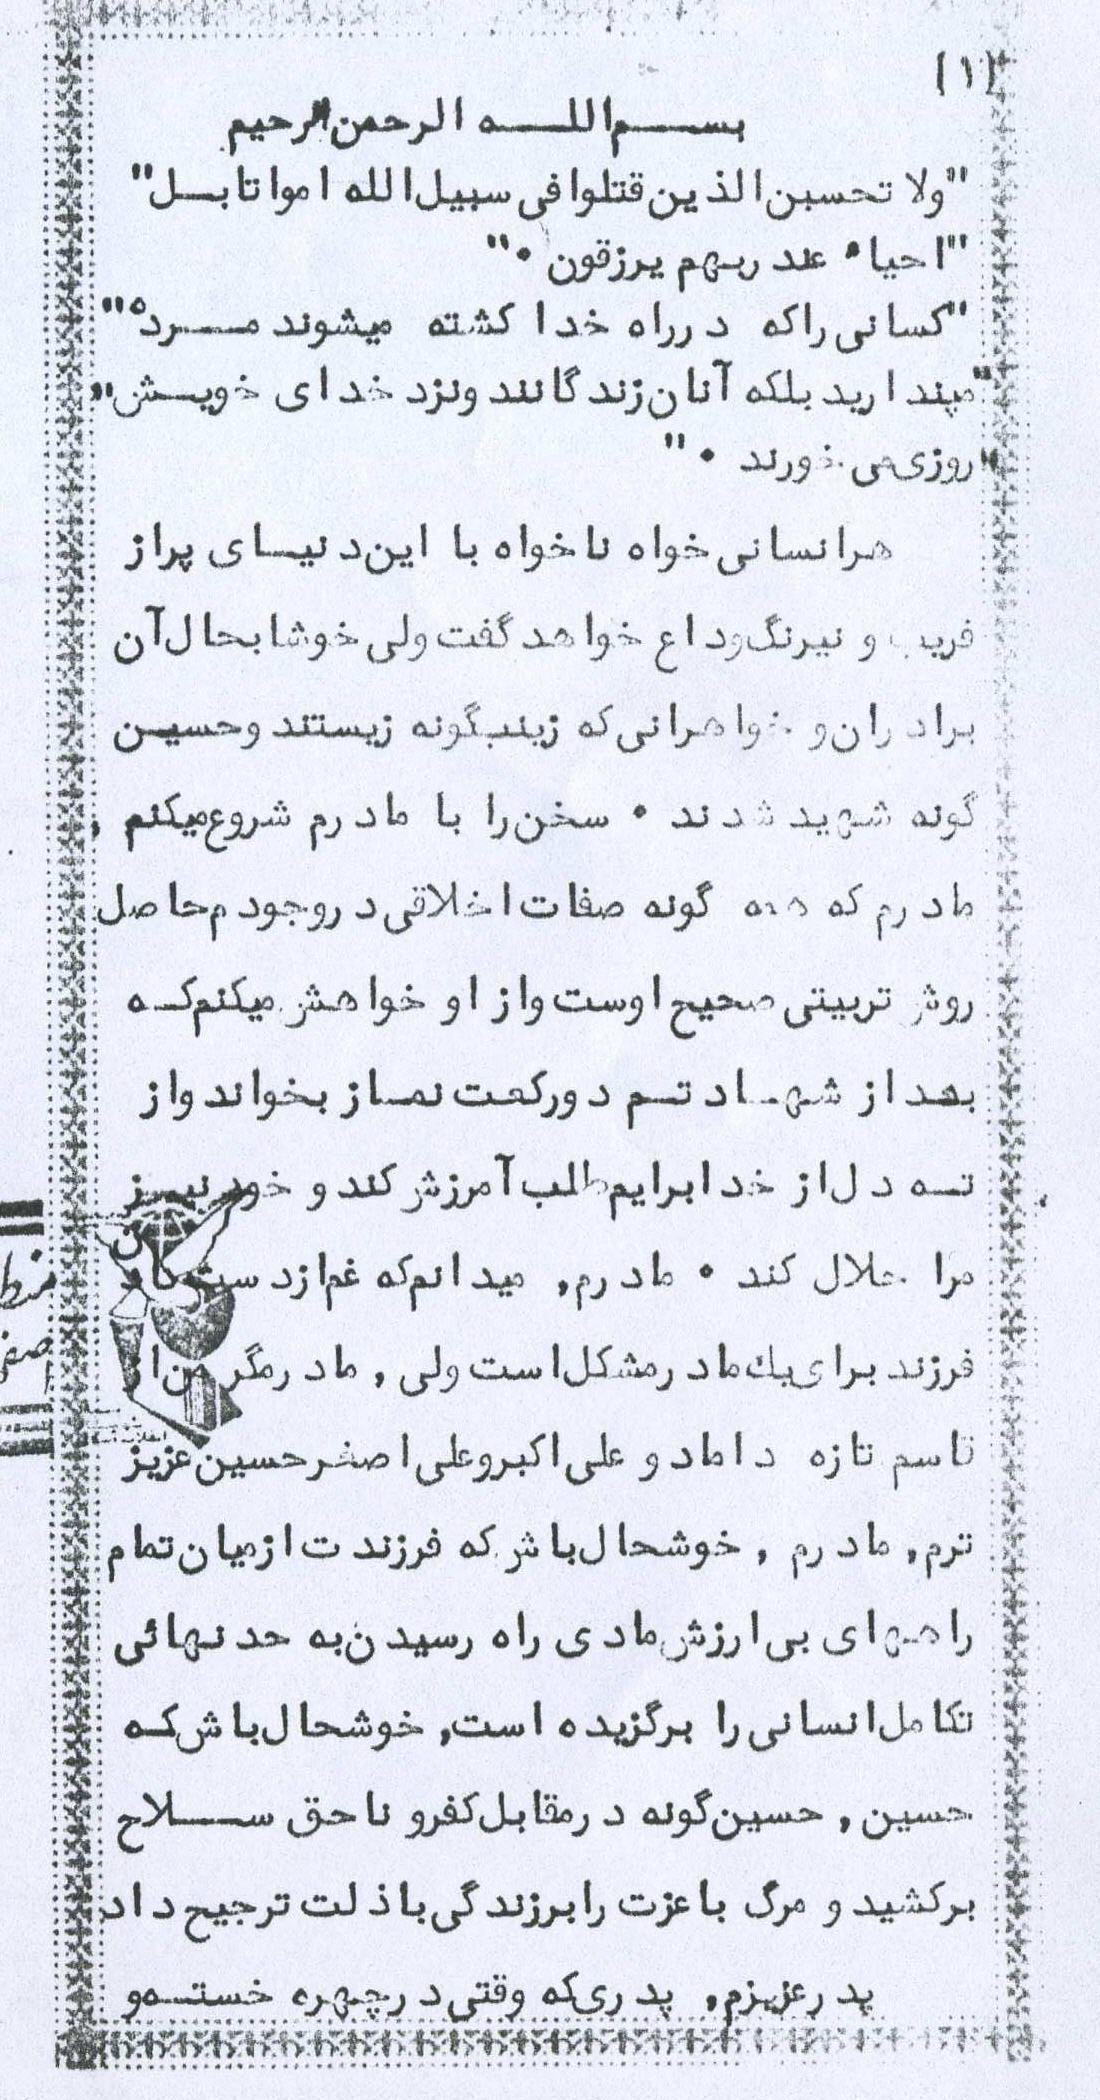 (۱)
بسم الله الرحمن الرحیم
"ولا تحسبن الذین قتلوا فی سبیل الله امواتا بل"
"احیاء عند ربهم یرزقون ."
"کسانی را که در راه خدا کشته میشوند مرده"
"مپندارید بلکه آنان زندگانند ونزد خدای خویش"
"روزی می خورند ."
هر انسانی خواه ناخواه با این دنیای پر از
فریب و نیرنگ وداع خواهد گفت ولی خوشا بحال آن
برادران و خواهرانی که زینب گونه زیستند و حسین
گونه شهید شدند . سخن را با مادرم شروع میکنم ,
مادرم که همه گونه صفات اخلاقی در وجودم حاصل
روش تربیتی صحیح اوست واز او خواهش میکنم که
بعد از شهادتم دورکعت نماز بخواند واز
ته دل از خدا برایم طلب آمرزش کند و خود نیز
مرا حلال کند . مادرم, میدانم که غم از دست دادن
فرزند برای یک مادر مشکل است ولی , مادر مگر من از
قاسم تازه داماد و علی اکبر و علی اصغر حسین عزیز
ترم, مادرم , خوشحال باش که فرزندت از میان تمام
راههای بی ارزش مادی راه رسیدن به حد نهائی
تکامل انسانی را برگزیده است, خوشحال باش که
حسین , حسین گونه در مقابل کفر و ناحق سلاح
برکشید و مرگ با عزت را بر زندگی با ذلت ترجیح داد.
پدر عزیزم, پدری که وقتی در چهره خسته و